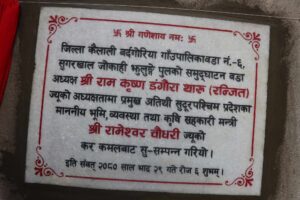 卐 श्री गणेशाय नमः 卐
जिल्ला कैलाली बर्दगोरिया गाँउपालिकावडा नं.-६,
सुगरखाल जोकाही झुलुङ्गे पुलको समुद्घाटन वडा
अध्यक्ष श्री राम कृष्ण डंगौरा थारू (रन्जित)
ज्यूको अध्यक्षतामा प्रमुख अतिथी सुदूरपश्चिम प्रदेशका
माननीय भूमि, व्यवस्था तथा कृषि सहकारी मन्त्री
श्री रामेश्वर चौधरी ज्यूको
कर कमलबाट सु-सम्पन्न गरियो ।
इति संबत् २०८० साल भाद्र २९ गते रोज ६ शुभम् ।